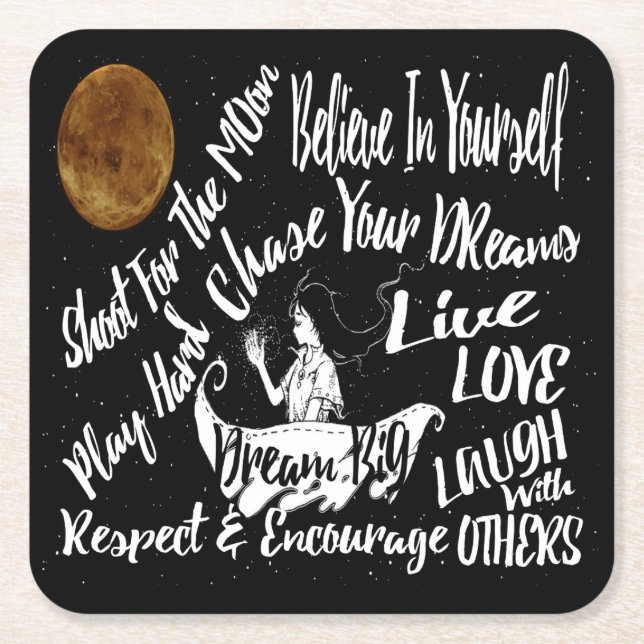 Believe In Yourself
Shoot For The MOon
Chase Your DReams
Play Hard
Live
LOVE
LAUGH
With
OTHERS
Dream BIG
Respect & Encourage